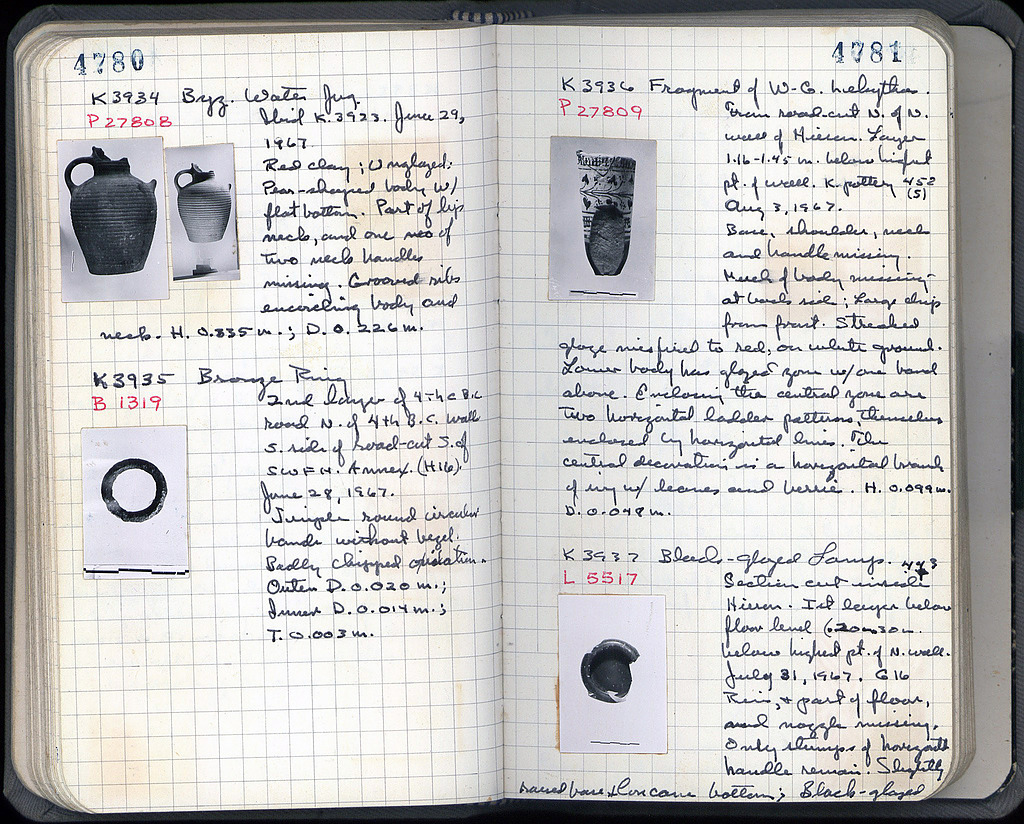 4780
K 3934 Byz. Water Jug
P 27808
Ibid K.3923. June 29,
1967.
Red clay; Unglazed;
Pear-shaped body w/
flat bottom. Part of lip
neck, and one of
two neck handles
missing. Grooved ribs
encircling body and
neck. H. 0.335 m.; D. 0.226 m.
K3935 Bronze Ring
B 1319
2nd layer of 4th c B.C.
road N. of 4th B.C. wall
S. side of road-cut S. of
SWFH. Annex. (H16).
June 28, 1967.
Simple round circular
band without bezel.
Badly chipped oxidation.
Outer D. 0.020 m.;
Inner D. 0.014 m.;
T. 0.003 m.
4781
K 3936 Fragment of W-G. Lekythos.
P 27809
From road-cut N. of N.
wall of Hieron. Layer
1.16-1.45 m. below highest
pt. of wall. K. pottery 452
(5)
Aug 3, 1967.
Base, shoulder, neck
and handle missing.
Much of body missing
at back side; Large chip
from front. Streaked
glaze misfired to red, on white ground.
Lower body has glazed zone w/ one band
above. Enclosing the central zone are
two horizontal ladder patterns, themselves
enclosed by horizontal lines. The
central decoration is a horizontal branch
of ivy w/ leaves and berries. H. 0.099 m.
D. 0.048 m.
K 3937 Black-glazed Lamp. 443
L 5517
Section cut inside
Hieron. 1st layer below
floor level (.20m-.30m.
below highest pt. of N. wall.
July 31, 1967. G16
Rim, + part of floor,
and nozzle missing.
Only stumps of horizontal
handle remain. Slightly
raised base + concave bottom; Black-glazed